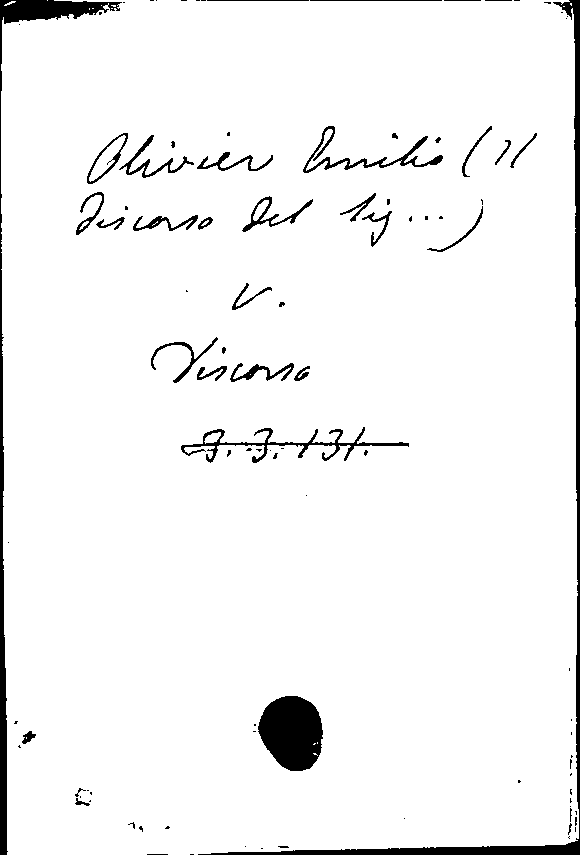 Olivier Emilio (Il
discorso del Sig...)
V.
Discorso
3.3.131.